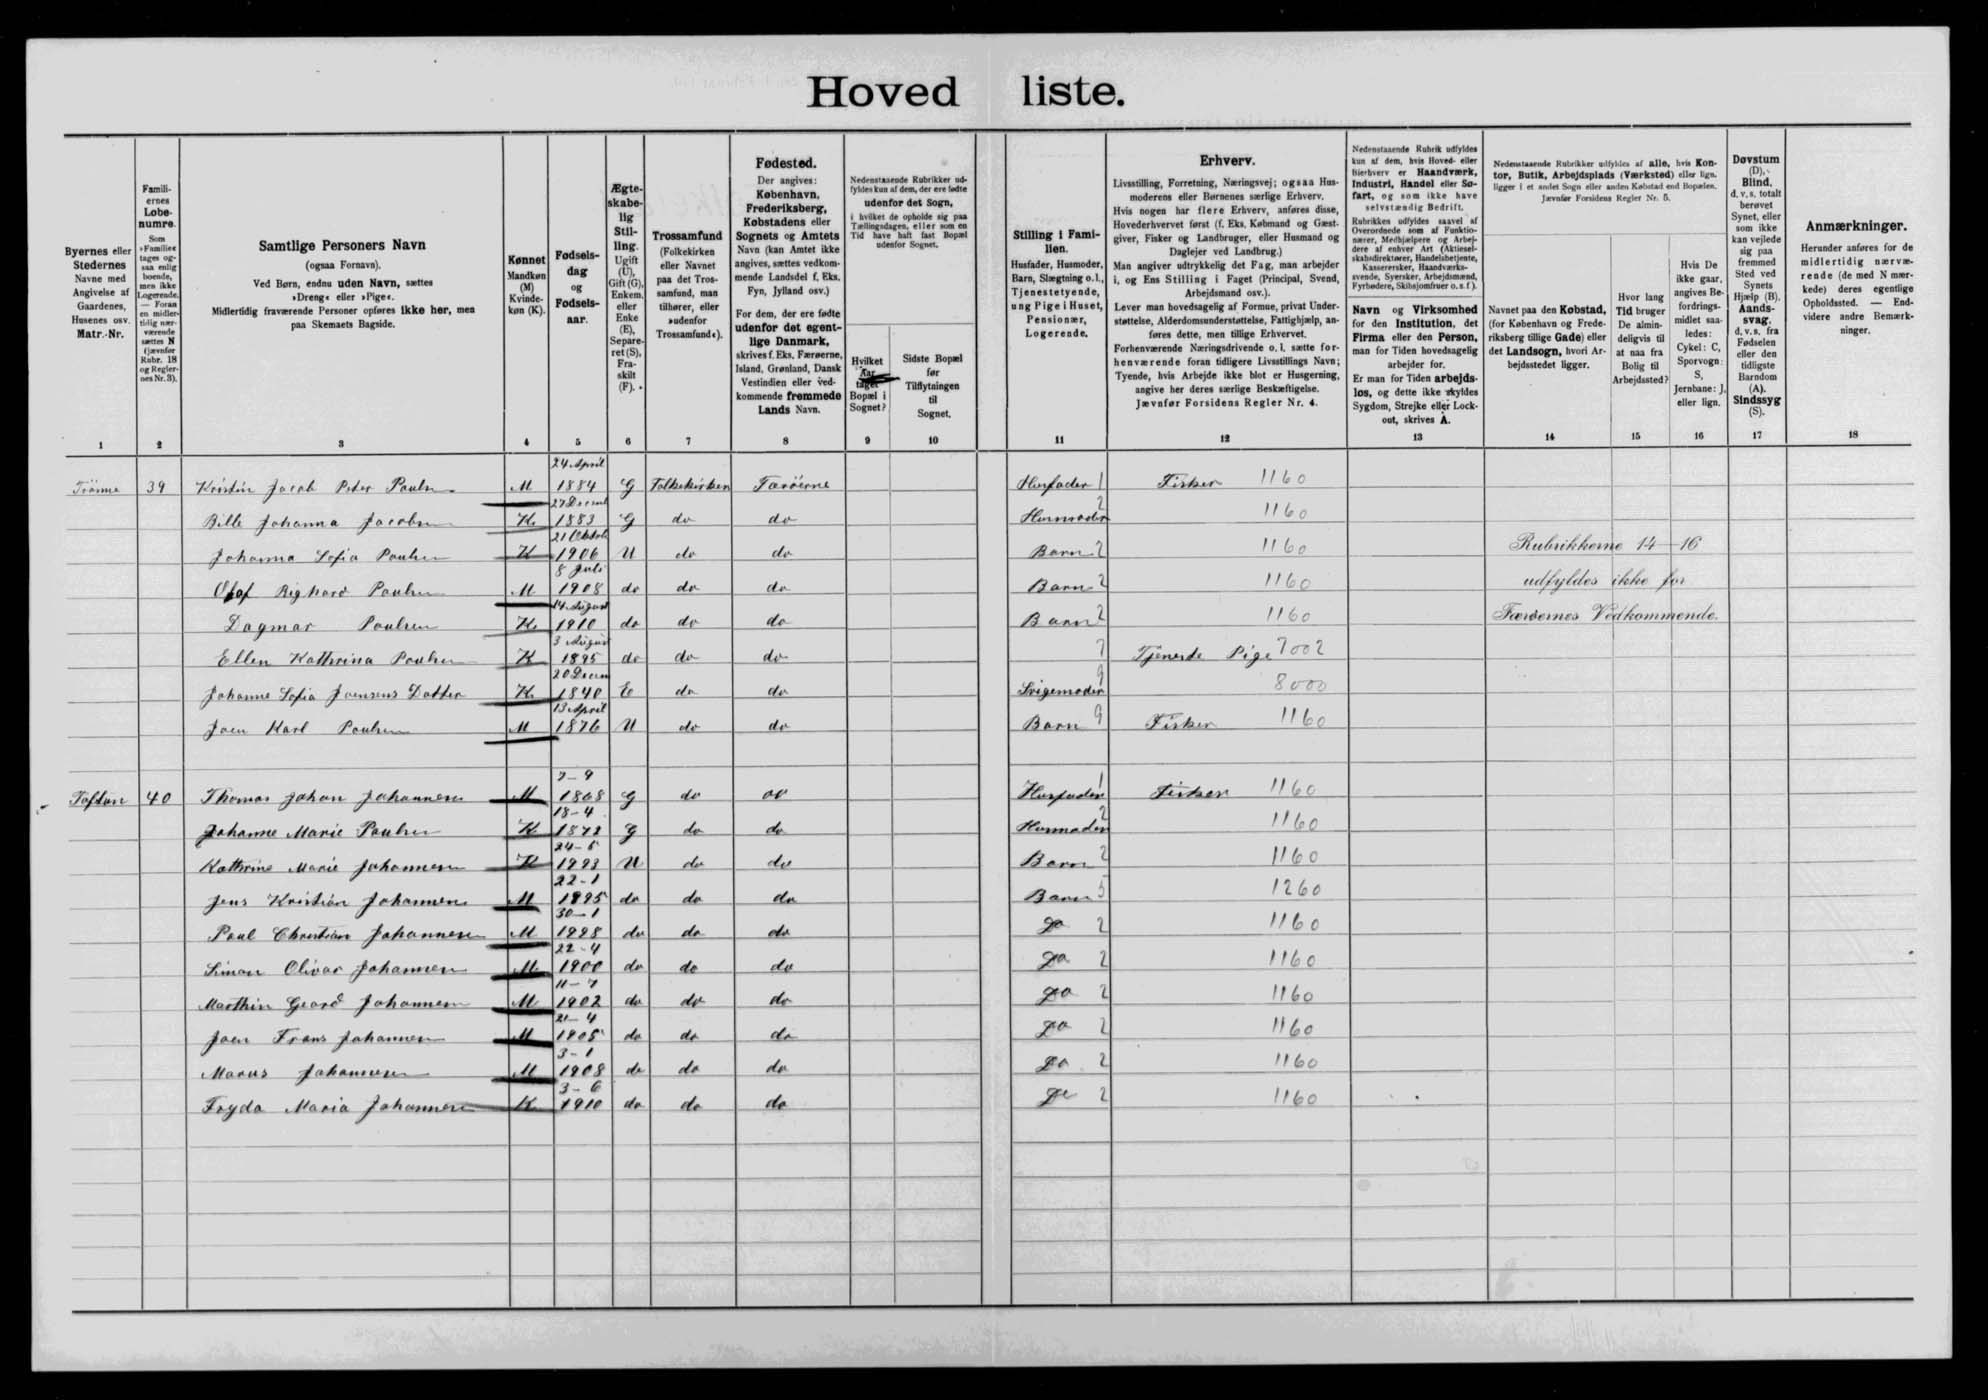 Hoved liste.
Byernes eller Stedernes Navne med Angivelse af Gaardenes, Husenes osv. Matr.-Nr.
Familiernes Løbenumre. Som »Familie« tages ogsaa enlig boende, men ikke Logerende. — Foran en midlertidig nærværende sættes N (jævnfør Rubr. 18 og Reglernes Nr. 3).
Samtlige Personers Navn (ogsaa Fornavn). Ved Børn, endnu uden Navn, sættes »Dreng« eller »Pige«. Midlertidig fraværende Personer opføres ikke her, men paa Skemaets Bagside.
Kønnet Mandkøn (M) Kvindekøn (K).
Fødselsdag og Fødselsaar.
Ægteskabelig Stilling. Ugift (U), Gift (G), Enkem. eller Enke (E), Separeret (S), Fraskilt (F).
Trossamfund (Folkekirken eller Navnet paa det Trossamfund, man tilhører, eller »udenfor Trossamfund«).
Fødested. Der angives: København, Frederiksberg, Købstadens eller Sognets og Amtets Navn (kan Amtet ikke angives, sættes vedkommende Landsdel f. Eks. Fyn, Jylland osv.) For dem, der ere fødte udenfor det egentlige Danmark, skrives f. Eks. Færøerne, Island, Grønland, Dansk Vestindien eller vedkommende fremmede Lands Navn.
Nedenstaaende Rubrikker udfyldes kun af dem, der ere fødte udenfor det Sogn, i hvilket de opholde sig paa Tællingsdagen, eller som en Tid have haft fast Bopæl udenfor Sognet.
Hvilket Aar taget Bopæl i Sognet?
Sidste Bopæl før Tilflytningen til Sognet.
Stilling i Familien. Husfader, Husmoder, Barn, Slægtning o. l., Tjenestetyende, ung Pige i Huset, Pensionær, Logerende.
Erhverv. Livsstilling, Forretning, Næringsvej; ogsaa Husmoderens eller Børnenes særlige Erhverv. Hvis nogen har flere Erhverv, anføres disse, Hovederhvervet først (f. Eks. Købmand og Gæstgiver, Fisker og Landbruger, eller Husmand og Daglejer ved Landbrug.) Man angiver udtrykkelig det Fag, man arbejder i, og Ens Stilling i Faget (Principal, Svend, Arbejdsmand osv.). Lever man hovedsagelig af Formue, privat Understøttelse, Alderdomsunderstøttelse, Fattighjælp, anføres dette, men tillige Erhvervet. Forhenværende Næringsdrivende o. l. sætte forhenværende foran tidligere Livsstillings Navn; Tyende, hvis Arbejde ikke blot er Husgerning, angive her deres særlige Beskæftigelse. Jævnfør Forsidens Regler Nr. 4.
Nedenstaaende Rubrik udfyldes kun af dem, hvis Hoved- eller Bierhverv er Haandværk, Industri, Handel eller Søfart, og som ikke have selvstændig Bedrift. Rubrikkes udfyldes saavel af Overordnede som af Funktionærer, Medhjælpere og Arbejdere af enhver Art (Aktieselskabsdirektører, Handelsbetjente, Kasserersker, Haandværkssvende, Syersker, Arbejdsmænd, Fyrbødere, Skibsjomfruer o. s. f.).
Navn og Virksomhed for den Institution, det Firma eller den Person, man for Tiden hovedsagelig arbejder for. Er man for Tiden arbejdsløs, og dette ikke skyldes Sygdom, Strejke eller Lockout, skrives A.
Nedenstaaende Rubrikker udfyldes af alle, hvis Kontor, Butik, Arbejdsplads (Værksted) eller lign. ligger i et andet Sogn eller anden Købstad end Bopælen. Jævnfør Forsidens Regler Nr. 5.
Navnet paa den Købstad, (for København og Frederiksberg tillige Gade) eller det Landsogn, hvori Arbejdsstedet ligger.
Hvor lang Tid bruger De almindeligvis til at naa fra Bolig til Arbejdssted?
Hvis De ikke gaar, angives Befordringsmidlet saaledes: Cykel: C, Sporvogn: S, Jernbane: J, eller lign.
Døvstum (D), Blind, d. v. s. totalt berøvet Synet, eller som ikke kan vejlede sig paa fremmed Sted ved Synets Hjælp (B). Aandssvag, d. v. s. fra Fødselen eller den tidligste Barndom (A). Sindssyg (S).
Anmærkninger. Herunder anføres for de midlertidig nærværende (de med N mærkede) deres egentlige Opholdssted. — Endvidere andre Bemærkninger.
1 2 3 4 5 6 7 8 9 10 11 12 13 14 15 16 17 18
39 Kristin Jacob Peter Paulsen M 24 April 1884 G Folkekirken Færöerne Husfader 1 Fisker 1160
Bille Johanna Jacobsen K 27 Decemb 1883 G do do Husmoder 2 1160
Johanna Sofia Paulsen K 21 Oktob 1906 U do do Barn 2 1160 Rubrikkerne 14—16
Olof Righard Paulsen M 8 Juli 1908 do do do Barn 2 1160 udfyldes ikke for
Dagmar Paulsen K 14 August 1910 do do do Barn 2 1160 Færøernes Vedkommende.
Ellen Kathrina Paulsen K 3 August 1895 do do do 7 Tjeneste Pige 7002
Johanne Sofia Joensens Datter K 20 Decem 1840 E do do Svigemoder 9 8000
Joen Karl Paulsen M 13 April 1876 U do do Barn 9 Fisker 1160
Toftun 40 Thomas Johan Johannesen M 7-9 1868 G do do Husfader 1 Fisker 1160
Johanne Marie Paulsen K 18-4 1872 G do do Husmoder 2 1160
Kathrine Marie Johannesen K 24-5 1893 U do do Barn 2 1160
Jens Kristian Johannesen M 22-1 1895 do do do Barn 5 1260
Poul Christian Johannesen M 30-1 1898 do do do Do 2 1160
Simon Olivar Johannesen M 22-4 1900 do do do Do 2 1160
Marthin Geard Johannesen M 11-7 1902 do do do Do 2 1160
Joen Frans Johannesen M 21-4 1905 do do do Do 2 1160
Marus Johannesen M 3-1 1908 do do do Do 2 1160
Fryda Maria Johannesen K 3-6 1910 do do do Do 2 1160